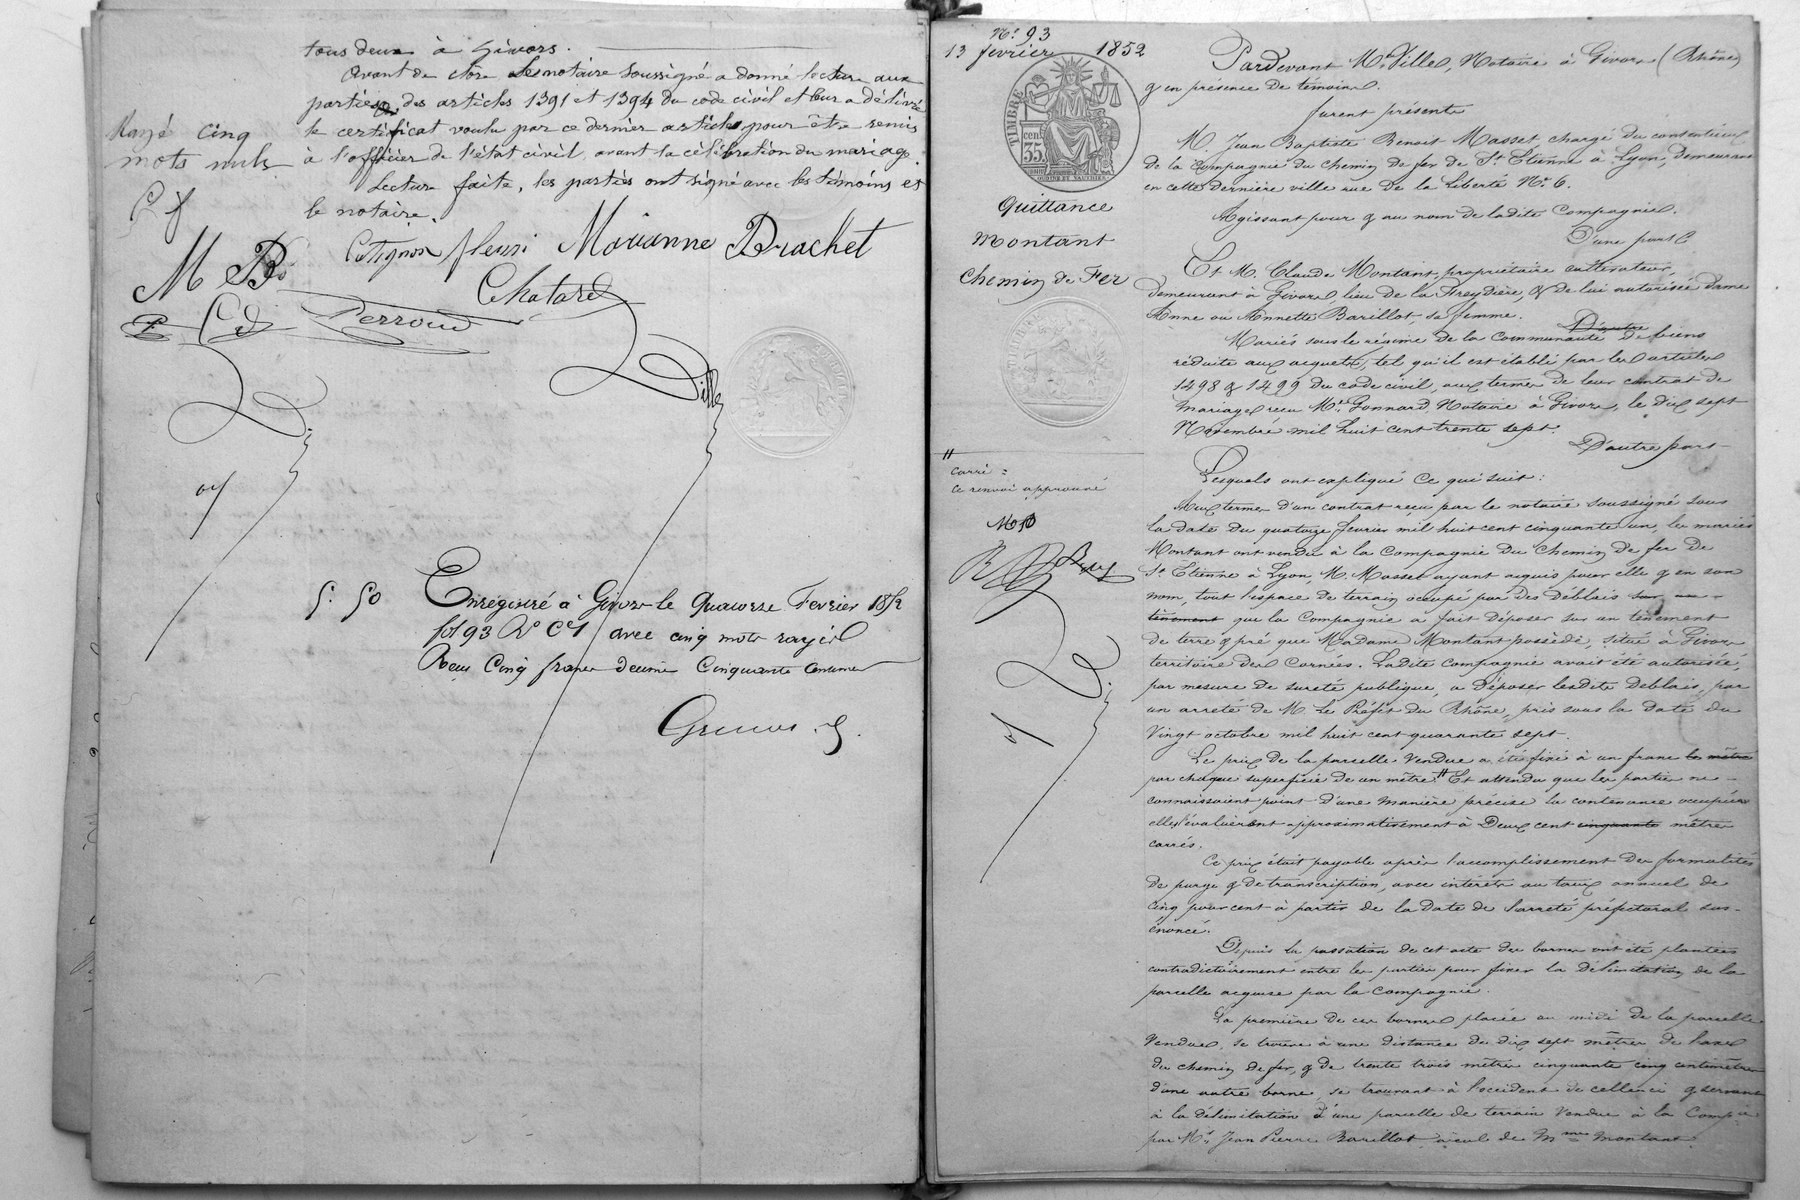 tous deux à Givors.
Avant de clore le notaire soussigné a donné lecture aux
parties des articles 1391 et 1394 du code civil et leur a délivré
le certificat voulu par ce dernier article pour être remis
à l'officier de l'état civil avant la célébration du mariage.
Lecture faite, les parties ont signé avec les témoins et
le notaire.
Rayé cinq
mots nuls.
Cotignon fleuri Marianne Brachet
M B
Chatard
Perroud
Ville
5. 50
Enregistré à Givors le Quatorze Fevrier 1852
fol 93 Vo Ce 1 avec cinq mots rayés
Reçu Cinq francs decime Cinquante centimes
N° 93
13 fevrier 1852
TIMBRE
cen
35
Quittance
Montant
Chemin de Fer
carré :
ce renvoi approuvé
Pardevant Me Ville, Notaire à Givors (Rhône)
& en présence de témoins.
furent présents
M. Jean Baptiste Benoit Masset chargé du contentieux
de la Compagnie du chemin de fer de St Etienne à Lyon, demeurant
en cette dernière ville rue de la Liberté No 6.
Agissant pour & au nom de ladite Compagnie.
D'une part
Et M. Claude Montant, propriétaire cultivateur,
demeurant à Givors, lieu de la Freydière, & de lui autorisée dame
Anne ou Annette Barillot, sa femme.
D'autre
Mariés sous le régime de la communauté de biens
réduite aux acquets, tel qu'il est établi par les articles
1498 & 1499 du code civil, aux termes de leur contrat de
mariage reçu Me Gonnard Notaire à Givors, le dix sept
Novembre mil huit cent trente sept.
D'autre part
Lesquels ont expliqué ce qui suit :
Aux termes d'un contrat reçu par le notaire soussigné sous
la date du quatorze fevrier mil huit cent cinquante un, les mariés
Montant ont vendu à la Compagnie du chemin de fer de
St Etienne à Lyon, M. Masset ayant acquis pour elle & en son
nom, tout l'espace de terrain occupé par des déblais sur un
tènement que la Compagnie a fait déposer sur un tènement
de terre & pré que Madame Montant possède, situé à Givors
territoire des Cornées. Ladite compagnie avait été autorisée,
par mesure de sureté publique, à déposer lesdits déblais, par
un arrêté de M. Le Préfet du Rhône, pris sous la date du
Vingt octobre mil huit cent quarante sept.
Le prix de la parcelle vendue a été fixé à un franc le mètre
par chaque superficie de un mètre Et attendu que les parties ne
connaissaient point d'une manière précise la contenance occupée
elles l'évaluèrent approximativement à Deux cent cinquante mètres
carrés.
Ce prix était payable après l'accomplissement des formalités
de purge & de transcription, avec intérêts au taux annuel de
cinq pour cent à partir de la date de l'arrêté préfectoral sus-
énoncé.
Depuis la passation de cet acte des bornes ont été plantées
contradictoirement entre les parties pour fixer la délimitation de la
parcelle acquise par la Compagnie.
La première de ces bornes placée au midi de la parcelle
vendue, se trouve à une distance de dix sept mètres de l'axe
du chemin de fer, & de trente trois mètres cinquante cinq centimètres
d'une autre borne, se trouvant à l'occident de celle-ci & servant
à la délimitation d'une parcelle de terrain vendue à la Compie
par M. Jean Pierre Barillot, aïeul de Mme Montant.